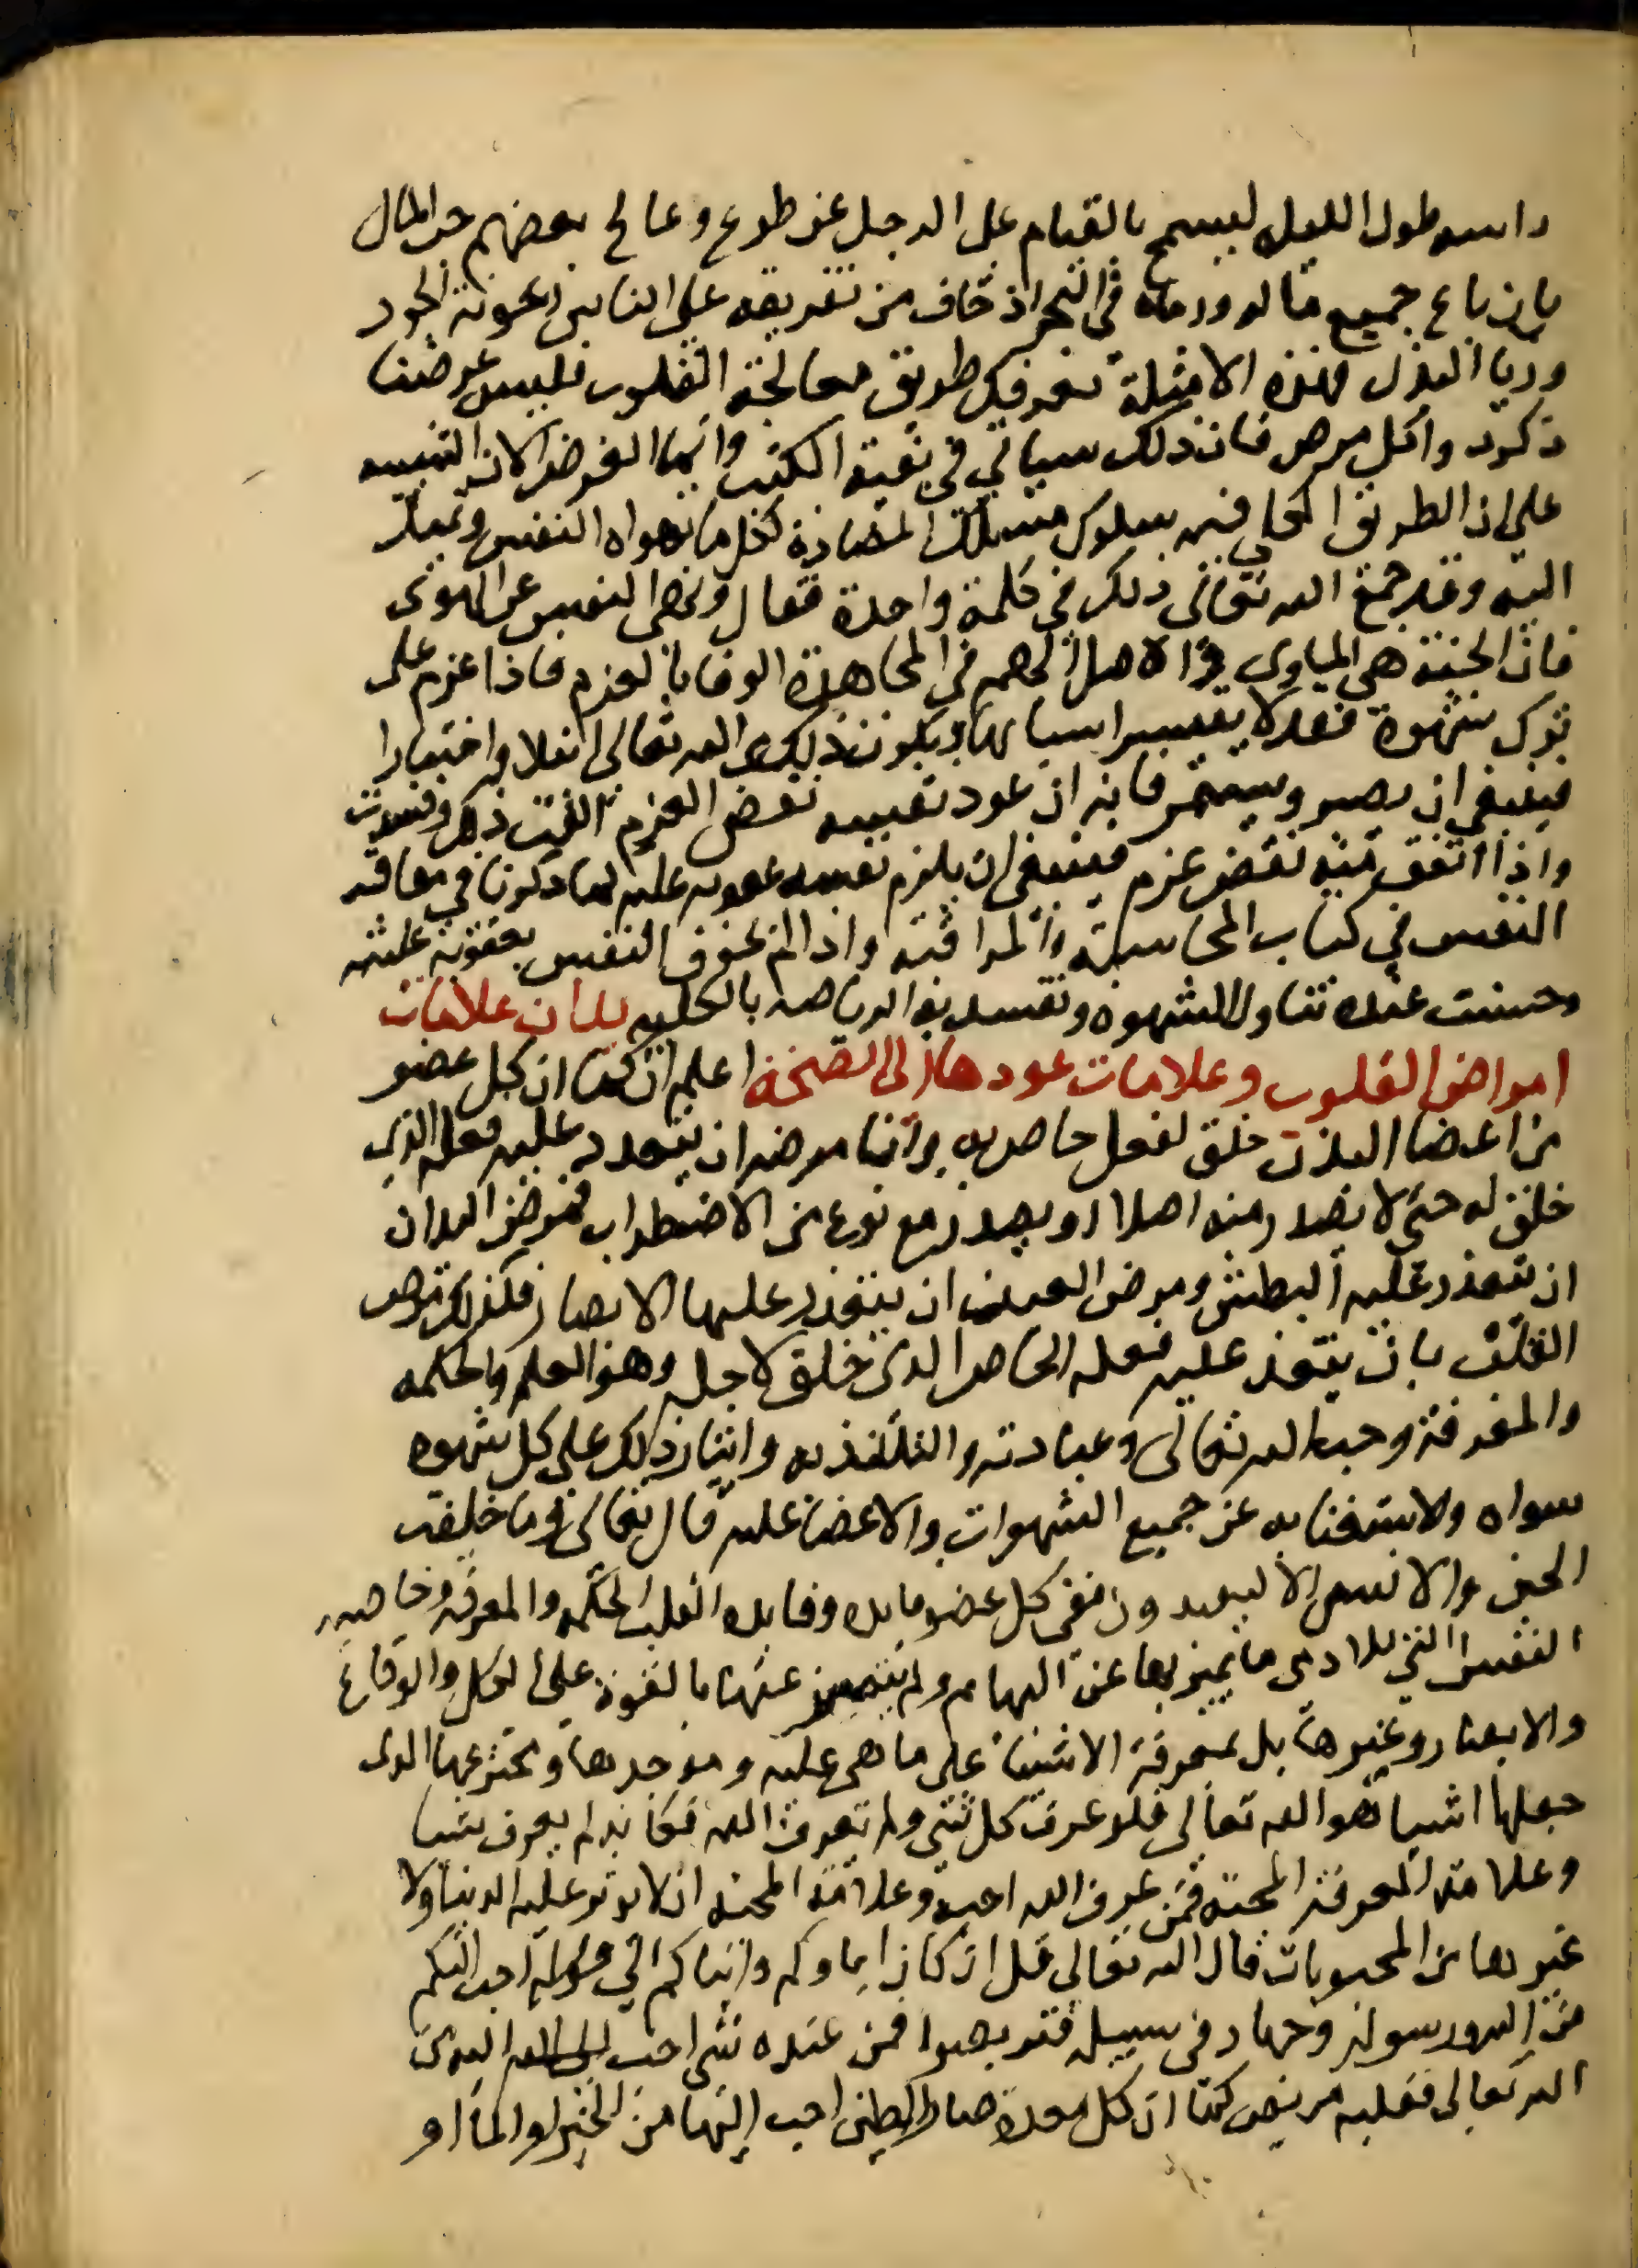 راسه طول الليل ليسمح بالقيام على الرجل عن طوع وعالج بعضهم حب المال
بان باع جميع ماله ورماه في البحر اذ خاف من تفريقه على الناس رعونة الجود
وريا البذل فهذه الامثلة تعرفك طريق معالجة القلوب فليس غرضنا
ذكر دواكل مرض فان ذلك سياتي في بقية الكتب وانما الغرض الان التنبيه
على ان الطريق الكلي فيه سلوك مسلك المضادة لكل ما تهواه النفس وتميل
اليه وقد جمع الله تعالى ذلك في كلمة واحدة فقال ونهى النفس عن الهوى
فان الجنة هي الماوى والاصل المهم في المجاهدة الوفا بالعزم فاذا عزم على
ترك شهوة فقد لا يتيسر اسبابها ويكون ذلك من الله تعالى ابتلا واختبارا
فينبغي ان يصبر ويستمر فانه ان عود نفسه نقض العزم الفت ذلك وفسدت
واذا اتفق منه نقض عزم فينبغي ان يلزم نفسه عقوبه عليه كما ذكرنا في معاقبه
النفس في كتاب المحاسبة والمراقبة واذا لم يخوف النفس بعقوبة غلبته
وحسنت عنده تناول الشهوه وتفسد بها الرياضه بالكليه بيان علامات
امراض القلوب وعلامات عودها الى الصحة اعلم ان كما ان كل عضو
من اعضا البدن خلق لفعل خاص به وانما مرضه ان يتعذر عليه فعله الذي
خلق له حتى لا يصدر منه اصلا او يصدر مع نوع من الاضطراب فمرض اليد ان
ان يتعذر عليه البطش ومرض العين ان يتعذر عليها الابصار فكذلك مرض
القلب بان يتعذر عليه فعله الخاص الذي خلق لاجله وهو العلم والحكمه
والمعرفة وحب الله تعالى وعبادته والتلذذ به وايثار ذلك على كل شهوه
سواه والاستغنا به عن جميع الشهوات والاعضا عليه قال تعالى وما خلقت
الجن والانس الا ليعبدون ففي كل عضو فايده وفايده القلب الحكمه والمعرفه وخاصيه
النفس التي للادمى ما يتميز بها عن البهايم ولم يتميز عنها بالقوة على الاكل والوقاع
والابصار وغيرها بل بمعرفة الاشيا على ما هي عليه وموجدها ومخترعها الذي
جعلها اشيا هو الله تعالى فلو عرف كل شي ولم يعرف الله فكانه لم يعرف شيا
وعلامة المعرفة المحبة فمن عرف الله احبه وعلامة المحبه ان لا يوثر عليه الدنيا ولا
غيرها من المحبوبات قال الله تعالى قل ان كان اباوكم وابناكم الى قوله احب اليكم
من الله ورسوله وجهاد في سبيله فتربصوا فمن عنده شي احب اليه من
الله تعالى فقلبه مريض كما ان كل معدة صار الطين احب اليها من الخبز او الما او